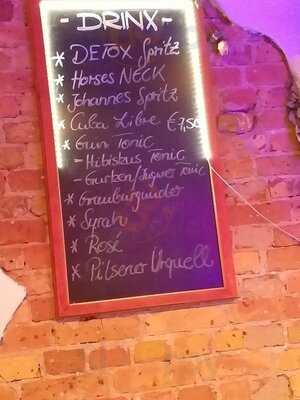 - DRINX -
* DETOX Spritz
* Horses NECK
* Johannes Spritz
* Cuba Libre €7,50
* Gin Tonic
- Hibiskus Tonic
- Gurken/Ingwer Tonic
* Grauburgunder
* Syrah
* Rosé
* Pilsener Urquell